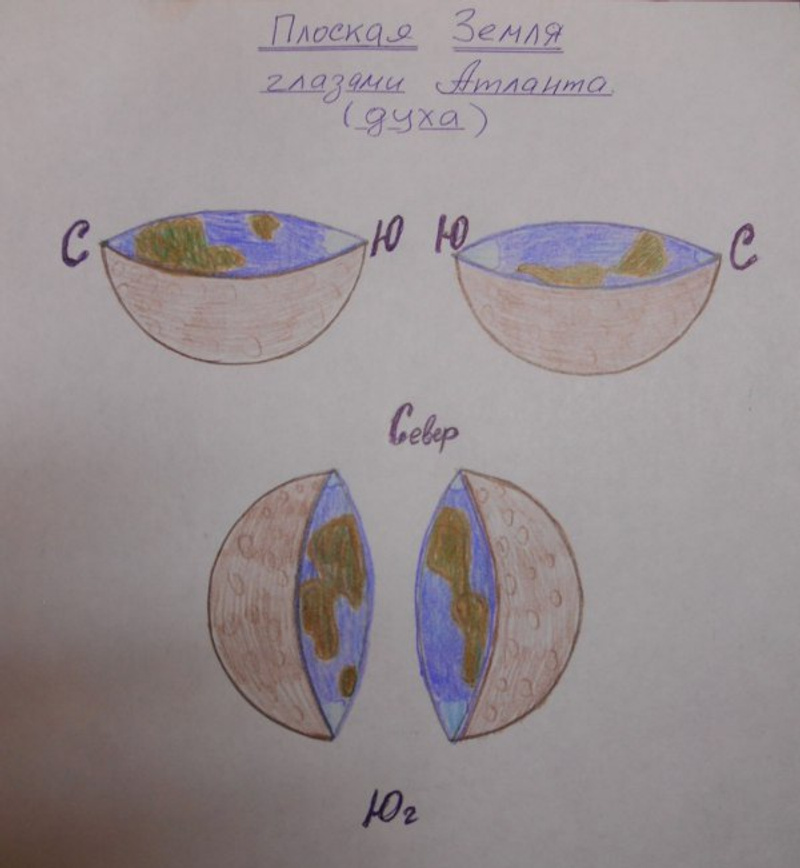 Плоская Земля
глазами Атланта
(духа)
С Ю Ю С
Север
Юг